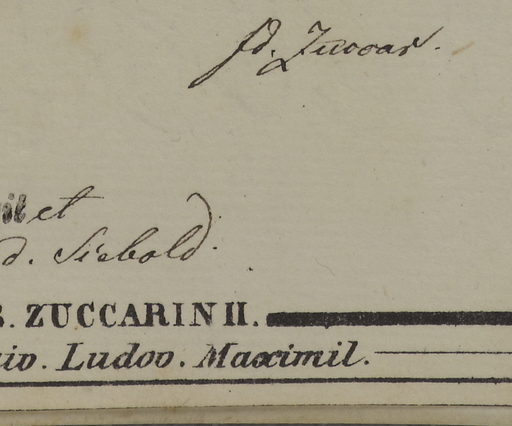 fd. Zuccar.
et
d. Siebold.
. ZUCCARINII.
io. Ludov. Maximil.